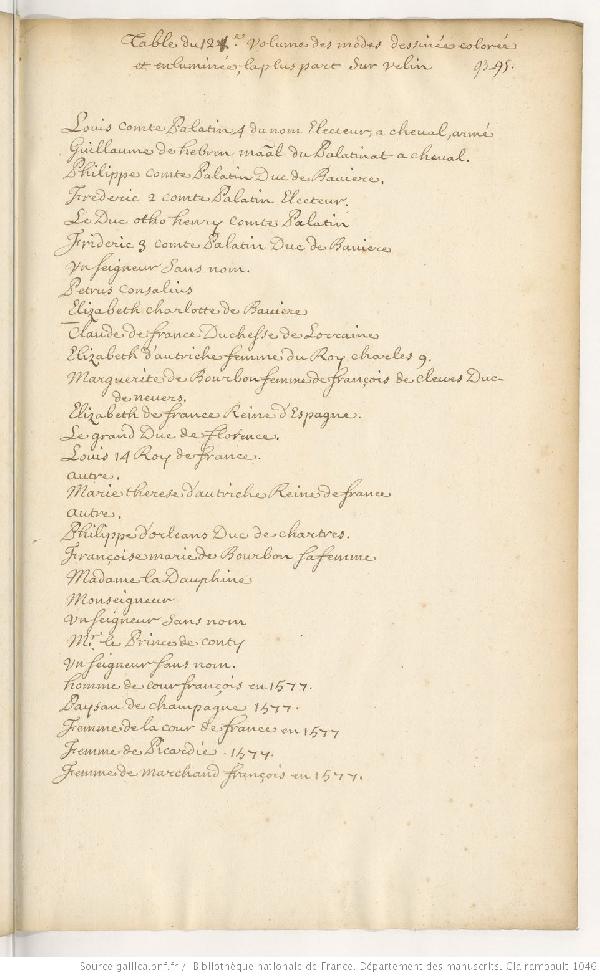 Table du 12 e. volume des modes dessinée colorée
et enluminée, la plus part sur velin 9395.
Louis comte Palatin 4 du nom Electeur, a cheval, armé
Guillaume de hebron maal du Palatinat a cheval.
Philippe comte Palatin Duc de Baviere.
Frederic 2 comte Palatin Electeur.
Le Duc otho henry comte Palatin
Frideric 3 comte Palatin Duc de Baviere
Vn seigneur sans nom.
Petrus Consalius
Elizabeth charlotte de Baviere
Claude de france Duchesse de Lorraine
Elizabeth d'autriche femme du Roy charles 9.
Marguerite de Bourbon femme de françois de cleves Duc
de nevers.
Elizabeth de france Reine d'Espagne.
Le grand Duc de florence.
Louis 14 Roy de france.
autre.
Marie therese d'autriche Reine de france
autre.
Philippe d'orleans Duc de chartres.
Françoise marie de Bourbon sa femme
Madame la Dauphine
Monseigneur
Vn seigneur sans nom
Mr. le Prince de conty
Vn seigneur sans nom.
homme de cour françois en 1577.
Paysan de champagne 1577.
Femme de la cour de france en 1577
Femme de Picardie . 1577.
Femme de marchand françois en 1577.
Source gallica.bnf.fr / Bibliothèque nationale de France. Département des manuscrits. Clairambault 1046